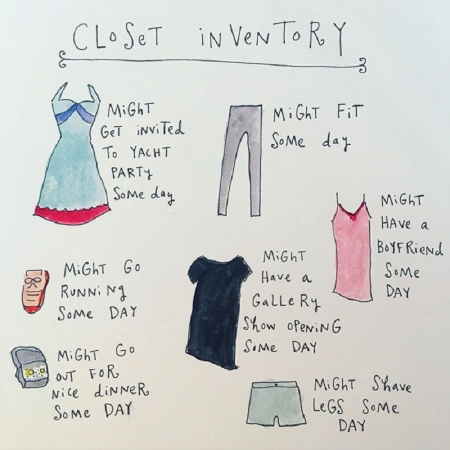 CLOSET INVENTORY
MiGHT
GET invited
To YACHT
PARTY
Some day
MiGHT FiT
Some day
MiGHT
HAVE a
BOYFRiEND
Some
DAY
MiGHT GO
RUNNiNG
Some DAY
MiGHT
HAVE a
GaLLERy
SHow OPENiNG
SoMe DAY
MiGHT GO
OUT FOR
NiCe DiNNER
Some DAY
MiGHT SHAVE
LeGS Some
DAY